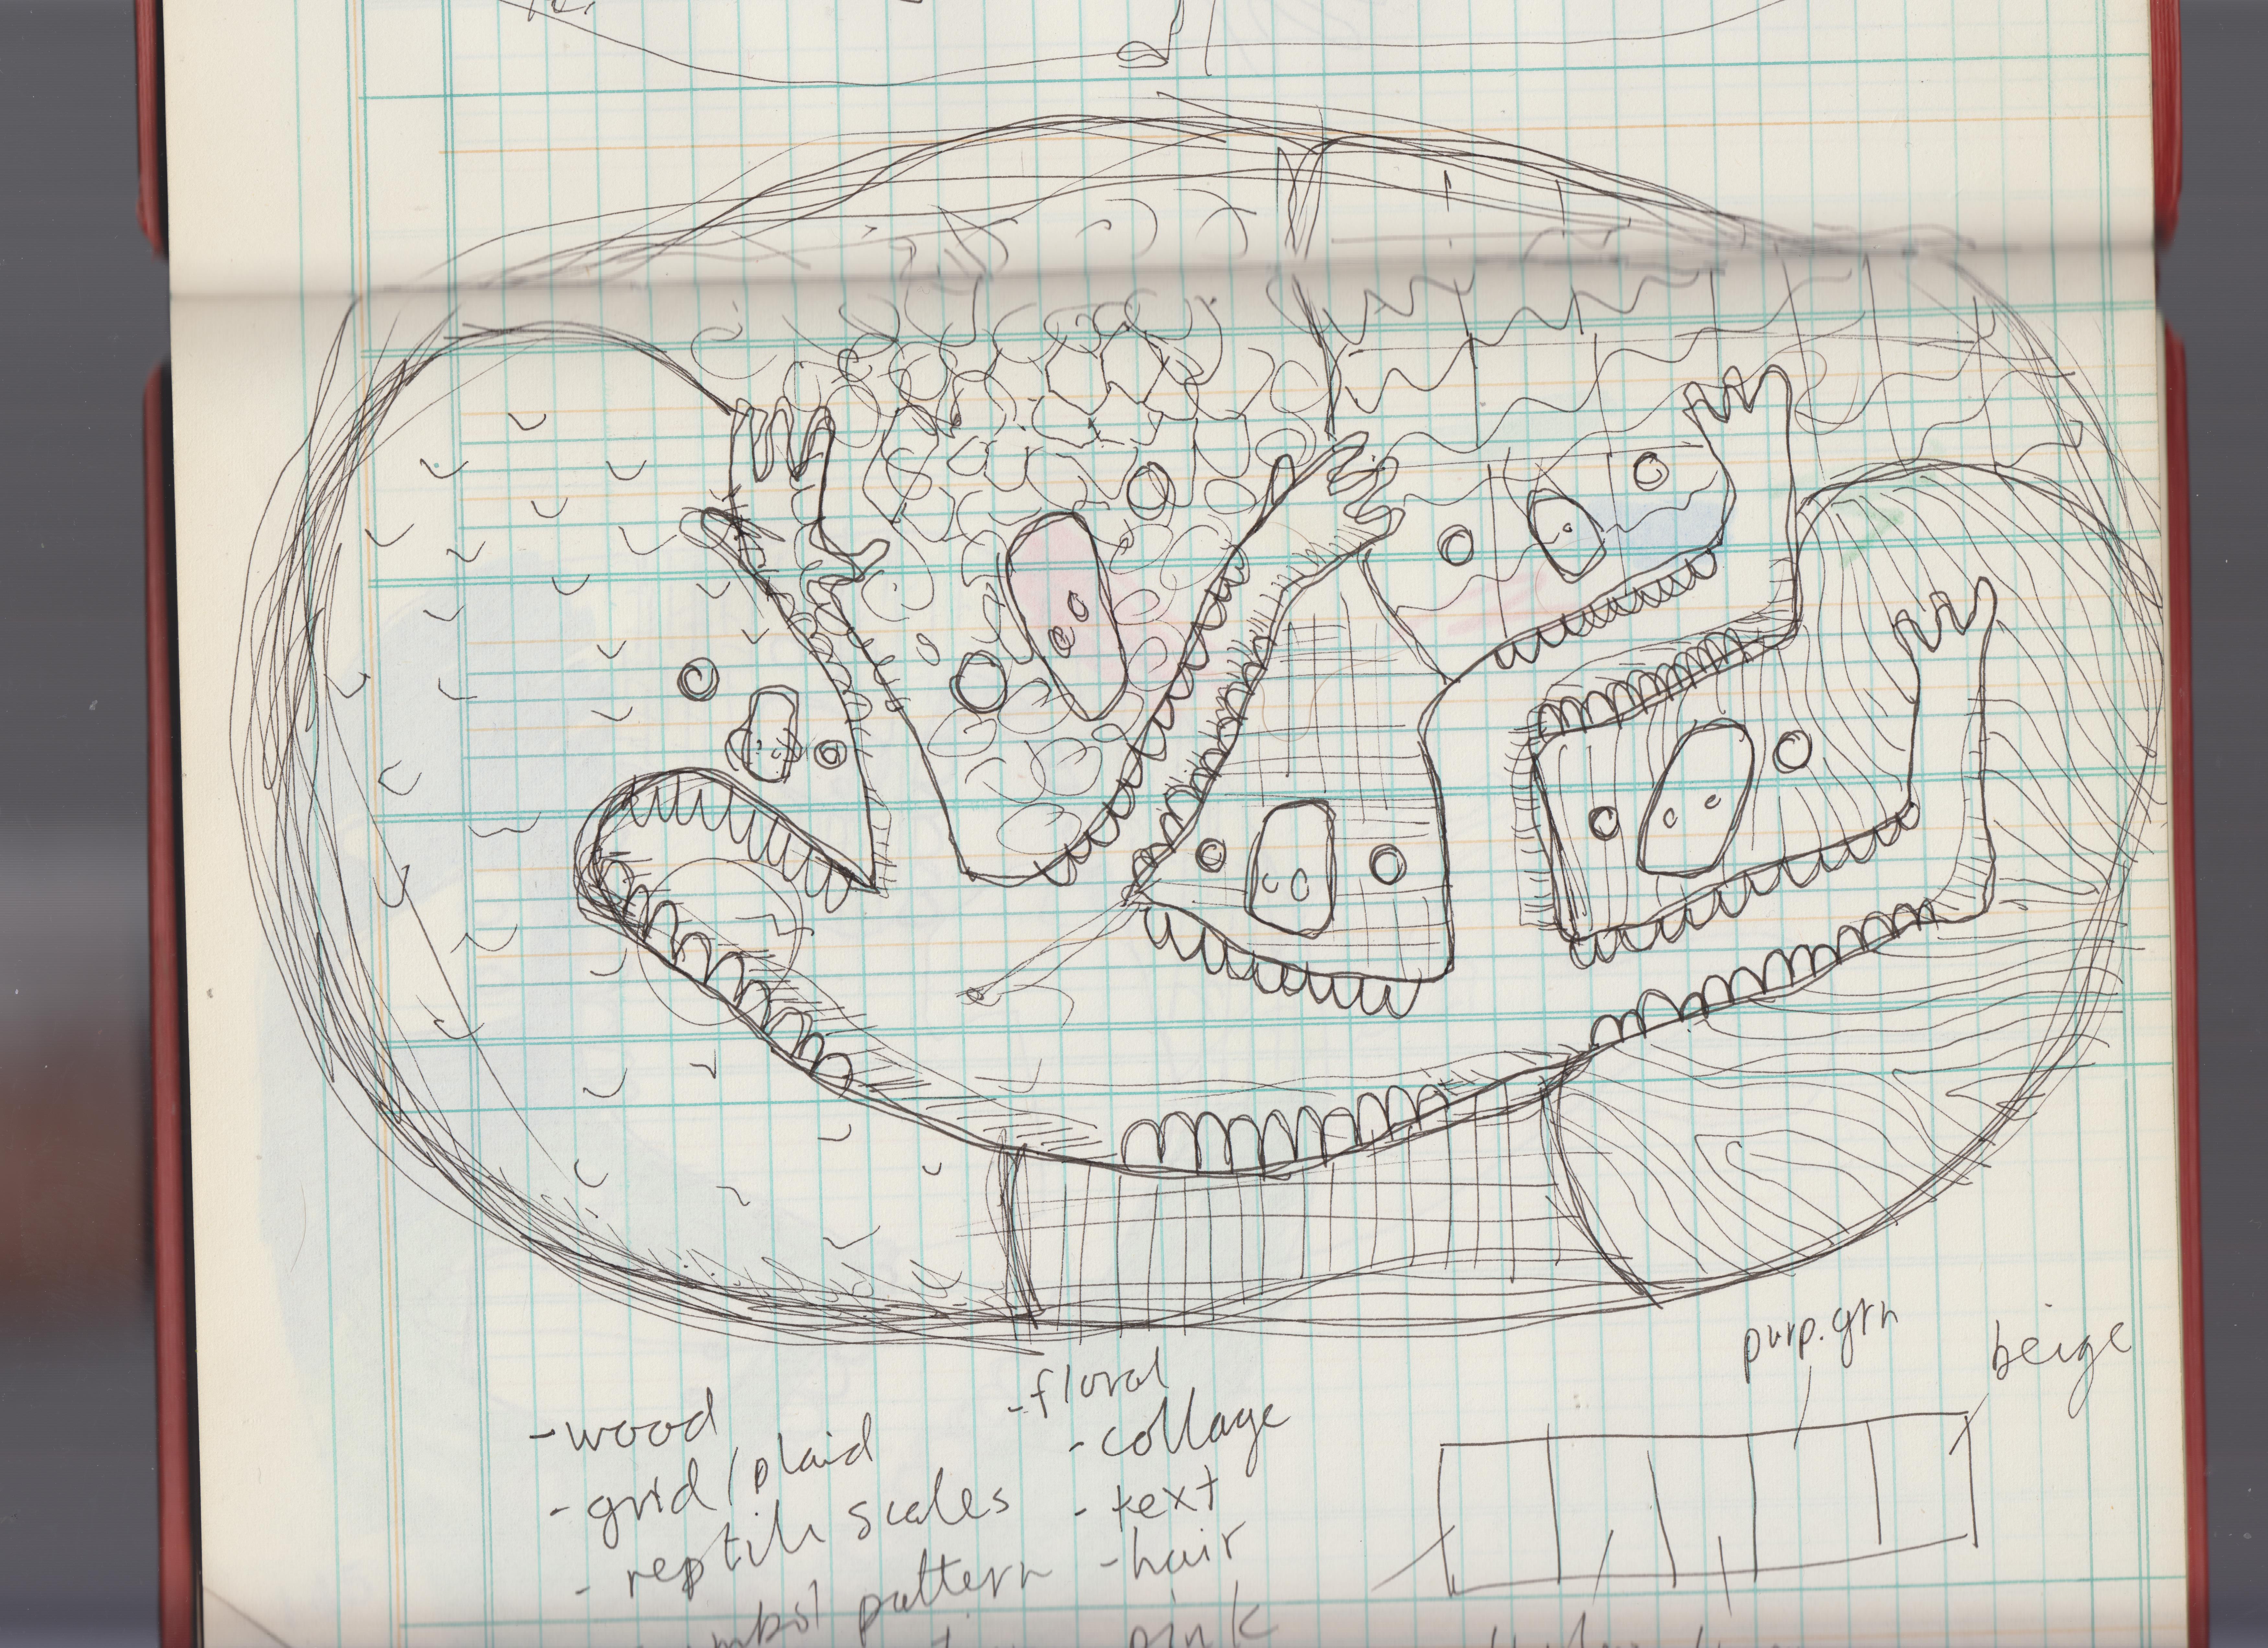 -wood
-grid/plaid
-reptile scales
pattern
-floral
-collage
-text
-hair
pink
purp.grn
beige